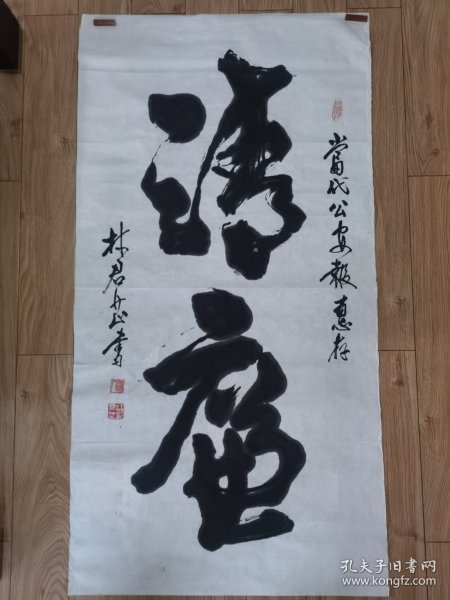 當代公安報惠存
清廉
林君
書
孔夫子旧书网
www.kongfz.com